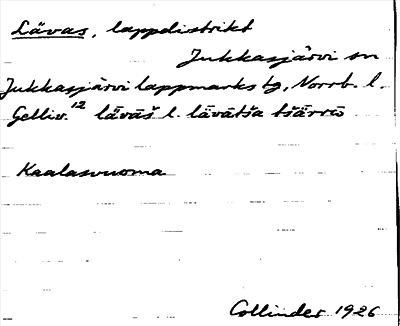 Lävas, lappdistrikt
Jukkasjärvi sn
Jukkasjärvi lappmarks tg, Norrb. l.
Gelliv.12 lāvāš l. lāvātša tšärrō
Kaalasvuoma
Collinder 1926